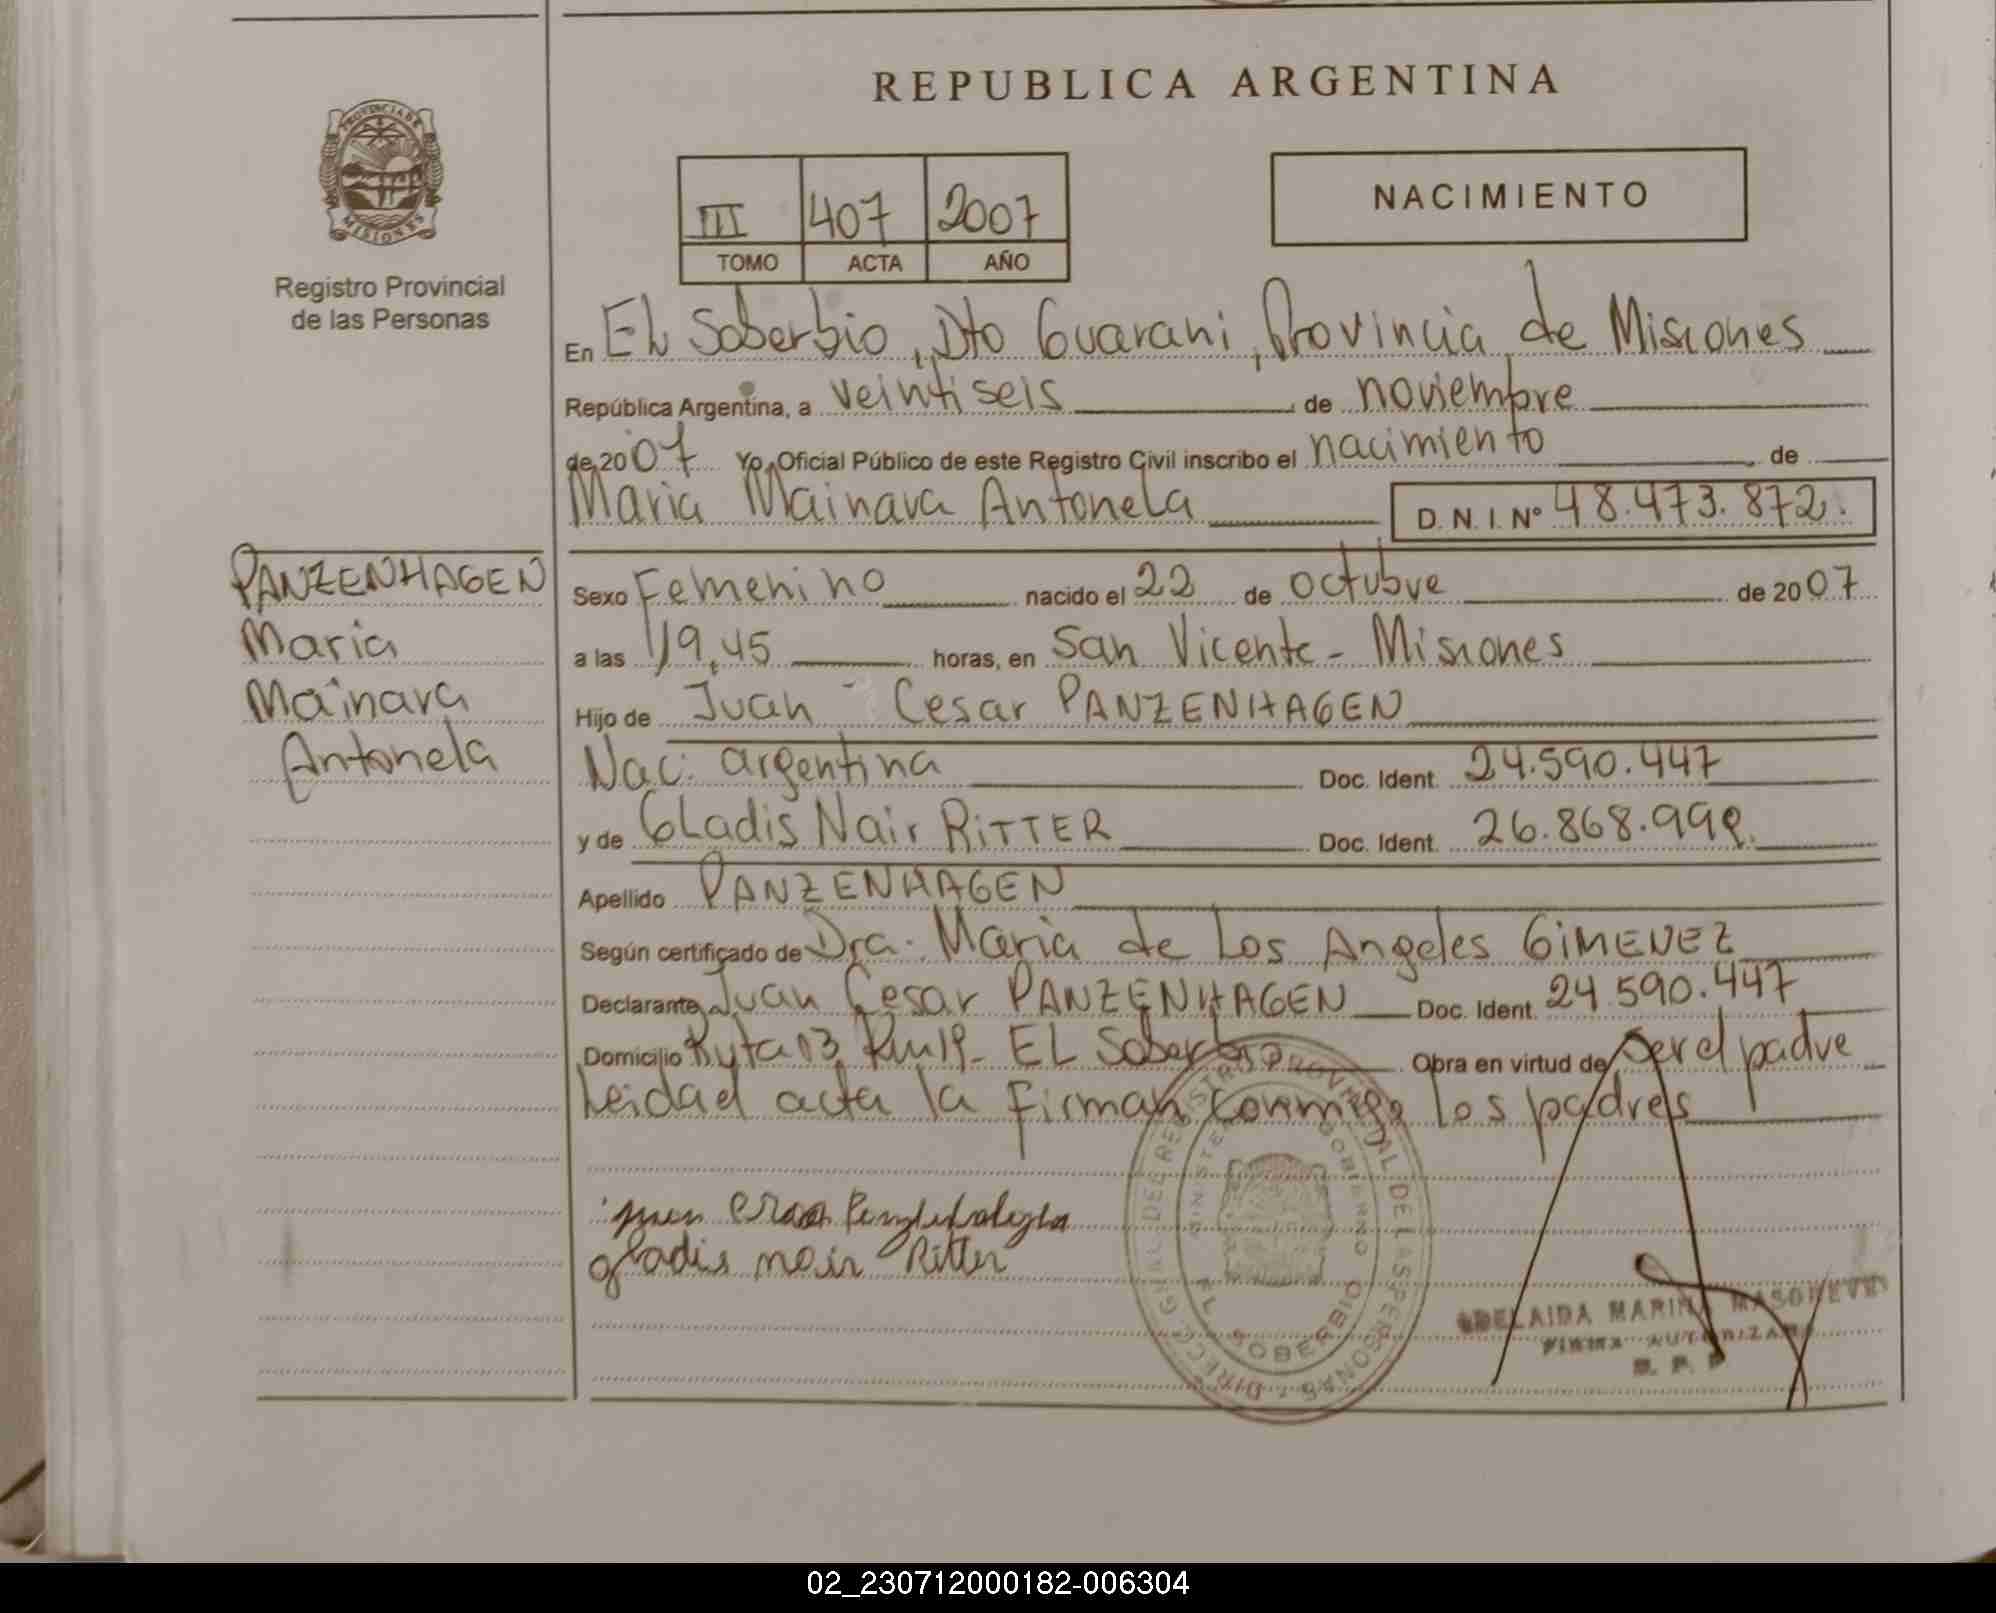 REPUBLICA ARGENTINA
PROVINCIA DE MISIONES
Registro Provincial
de las Personas
III 407 2007
TOMO ACTA AÑO
NACIMIENTO
En EL Soberbio, Dto Guarani, Provincia de Misiones
República Argentina, a veintiseis de noviembre
de 2007 Yo, Oficial Público de este Registro Civil inscribo el nacimiento de
Maria Mainara Antonela D.N.I. Nº 48.473.872.
PANZENHAGEN
Maria
Mainara
Antonela
Sexo Femenino nacido el 22 de octubre de 2007
a las 19,45 horas, en San Vicente - Misiones
Hijo de Juan Cesar PANZENHAGEN
Nac. argentina Doc. Ident. 24.590.447
y de Gladis Nair RITTER Doc. Ident. 26.868.999.
Apellido PANZENHAGEN
Según certificado de Dra. Maria de Los Angeles GIMENEZ
Declarante Juan Cesar PANZENHAGEN Doc. Ident. 24.590.447
Domicilio Ruta 13 Km 19 - EL Soberbio Obra en virtud de ser el padre
Leidad acta la firman conmigo los padres
gladis nair Ritter
DIREC. GRAL. DEL REGISTRO PROVINCIAL DE LAS PERSONAS
MINISTERIO GOBIERNO
EL SOBERBIO
ADELAIDA MARINA
FIRMA AUTORIZADA
02_230712000182-006304